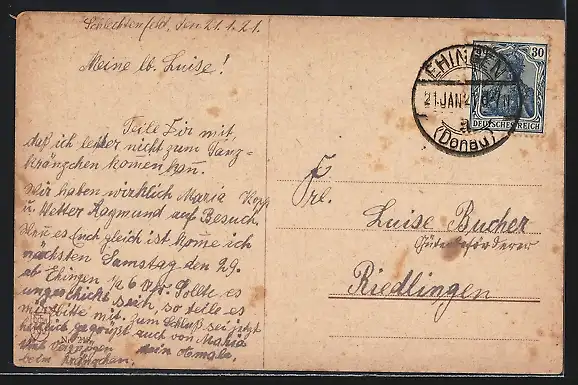 Schlechtenfeld, den 21.1.21.
Meine lb. Luise!
Teile Dir mit,
daß ich leider nicht zum Tanz-
kränzchen kommen kan.
Wir haben wirklich Maria
u. Vetter Raymund auf Besuch.
Wen es Euch gleich ist kome ich
nächsten Samstag den 29.
ab Ehingen 1/2 6 Uhr. Sollte es
ungeschickt sein, so teile es
mir bitte mit. Zum Schluß sei jetzt
herzlich gegrüßt auch von Maria
Vergnügen
beim Kränzchen.
EHINGEN
21.JAN.21
(Donau)
30
DEUTSCHES REICH
Frl.
Luise Bucher
Riedlingen